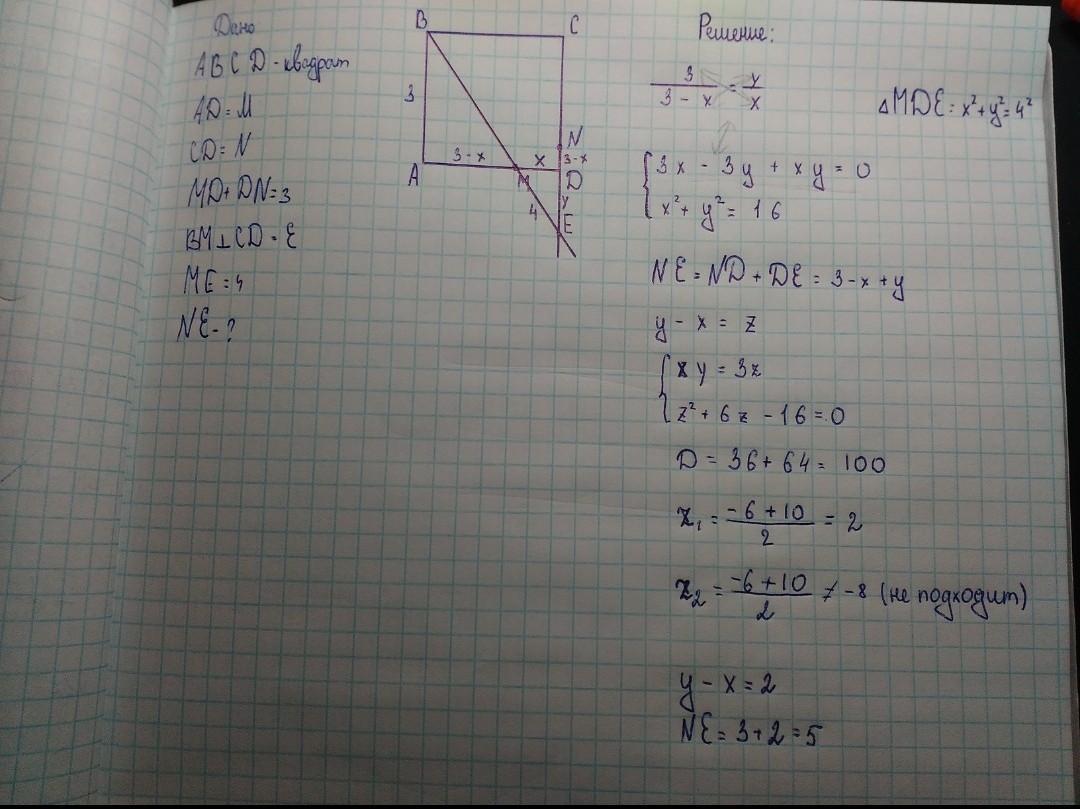 Дано
ABCD - квадрат
AD = M
CD = N
MD + DN = 3
BM ⊥ CD - E
ME = 4
NE - ?
B
C
3
N
3-x
x
3-x
A
M
D
y
4
E
Решение:
3/(3 - x) = y/x
△MDE: x² + y² = 4²
{ 3x - 3y + xy = 0
x² + y² = 16
NE = ND + DE = 3 - x + y
y - x = z
{ xy = 3z
z² + 6z - 16 = 0
D = 36 + 64 = 100
z₁ = (-6 + 10)/2 = 2
z₂ = (-6 + 10)/2 ≠ -8 (не подходит)
y - x = 2
NE = 3 + 2 = 5